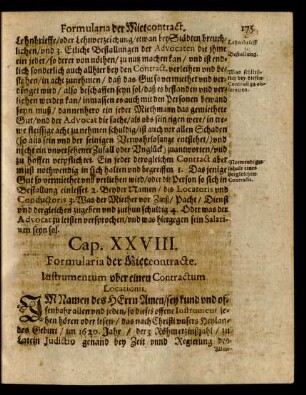 Formularia der Mietcontract. 175
Lehnbrieffe / oder Lehnverzeichung / etwan bey Städten breuch-
lichen / und 2. Etliche Bestallungen der Advocaten die ihme
ein jeder / so derer von nöhten / zu nutz machen kan / und ist end-
lich sonderlich auch allhier bey den Contract. verleihen und be-
stehen / in acht zunehmen / daß das Gut so vermiethet und ver-
liehen wird / also beschaffen seyn sol / daß es bestanden und verlie-
hen werden kan / inmassen es auch mit den Personen bewand
seyn muß / dannenhero ein jeder Miethmann das gemiethete
Gut / und der Advocat die sache / als obs sein eigen were / in tre-
wer fleissige acht zu nehmen schuldig / ist auch vor allen Schaden
so aus sein und der seinigen Verwarlosung entstehet / und
nicht ein unversehener Zufall oder Unglück) zuantworten / und
zu hoffen verpflichtet. Ein jeder derogleichen Contract aber
muß nothwendig in sich halten und begreiffen 1. Das jenige
Gut so vermiethet und verliehen wird / oder die Person so sich in
Bestallung einlesset 2. Beyder Namen / des Locatoris und
Conductoris 3. Was der Miether vor Zinß / Pacht / Dienst
und dergleichen zugeben und zuthun schultig 4. Oder was der
Advocat zu leisten versprochen / und was hiergegen sein Salari-
um seyn sol.
Lehnbrieff
Bestallung.
Nothwendiges
Contracts.
Cap. XXVIII.
Formularia der Mietcontracte.
Instrumentum uber einen Contractum
Locationis.
IM Namen des HErrn Amen / sey kund und of-
fenbahr allen und jeden / so dieses offene Instrument se-
hen hören oder lesen / das nach Christi unsers Heylan-
des Geburt / im 1620. Jahr / der 3. Römerzinßzahl / zu
Latein Judictio genand bey Zeit vnnd Regierung des